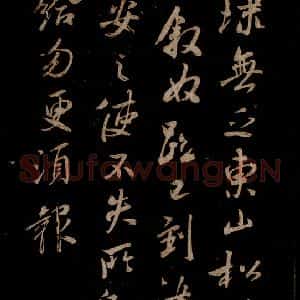 無乏東山松
叙奴踈到
安之使不失所
給勿更須報
Shufawang.CN